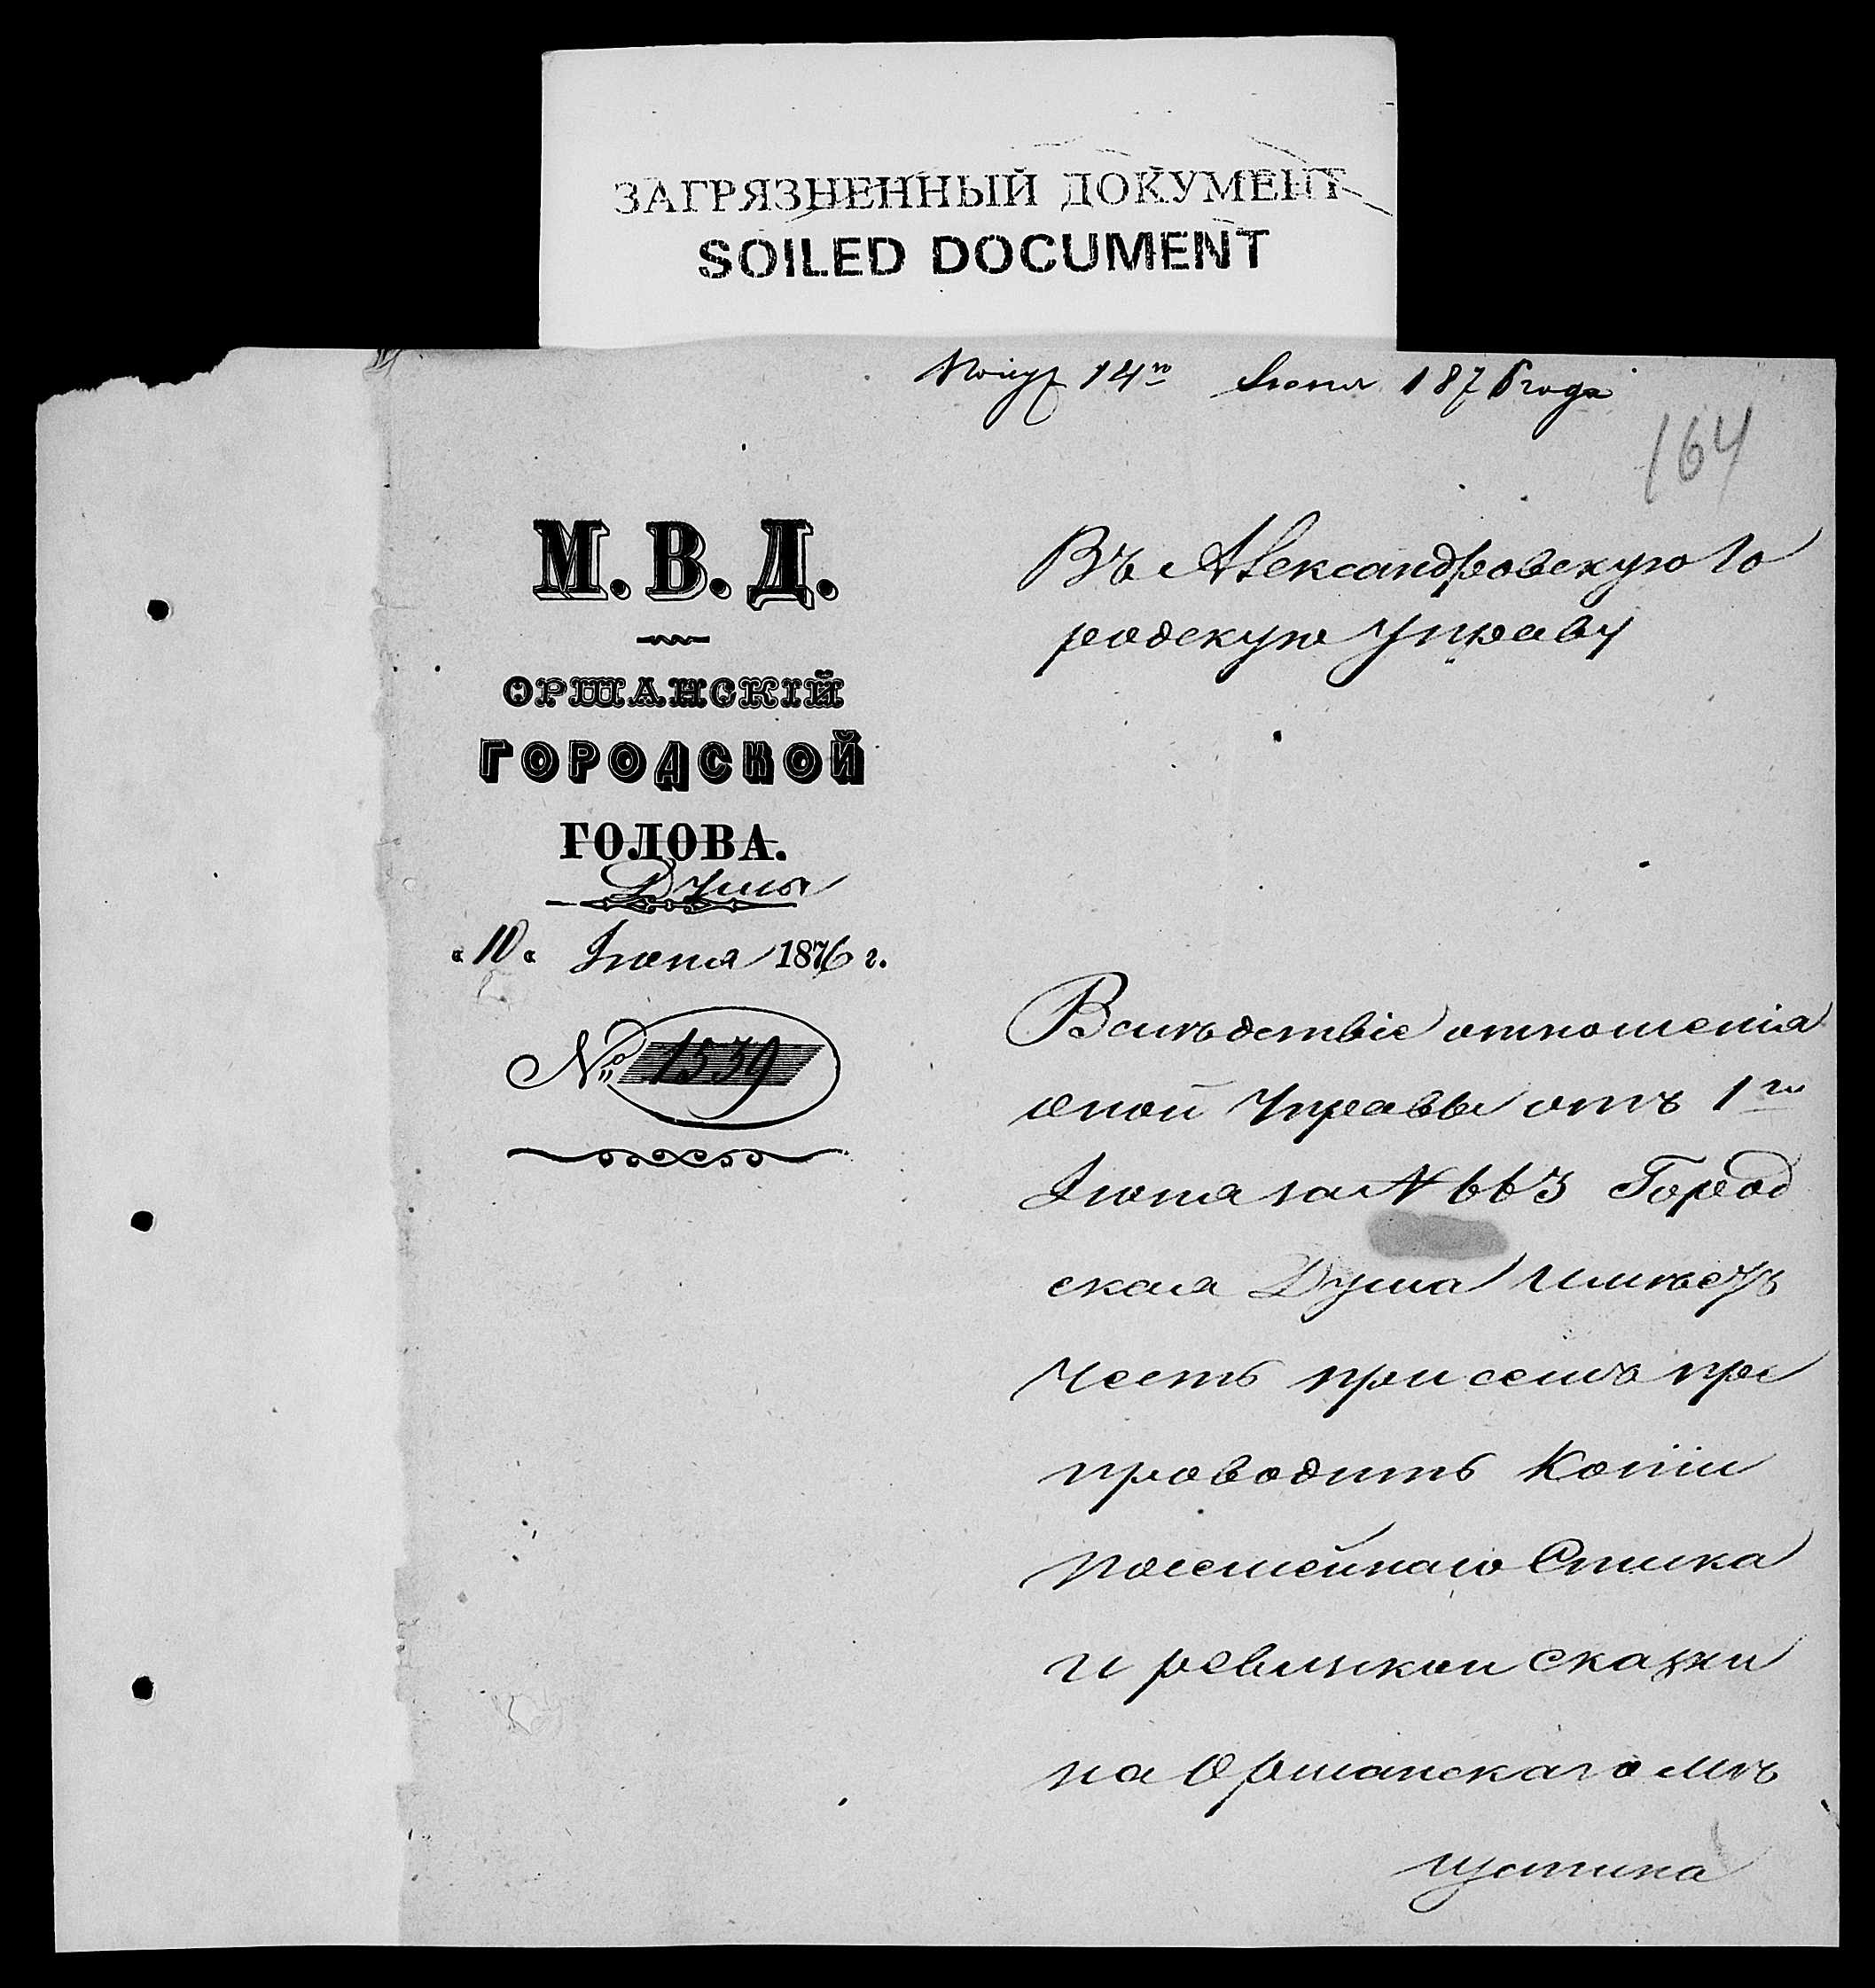 ЗАГРЯЗНЕННЫЙ ДОКУМЕНТ
SOILED DOCUMENT
Получ 14го Іюня 1876 года
164
М. В. Д.
ОРШАНСКІЙ
ГОРОДСКОЙ
ГОЛОВА.
Думы
"10" Іюня 1876 г.
№ 1539
Въ Александровскую Го
родскую Управу
Вслѣдствіе отношенія
оной Управы отъ 1го
Іюня за № 663 Город
ская Дума имѣетъ
честь при семъ пре
проводить Копіи
посемейнаго Списка
и ревизкои сказки
на Оршанскаго мѣ
щанина